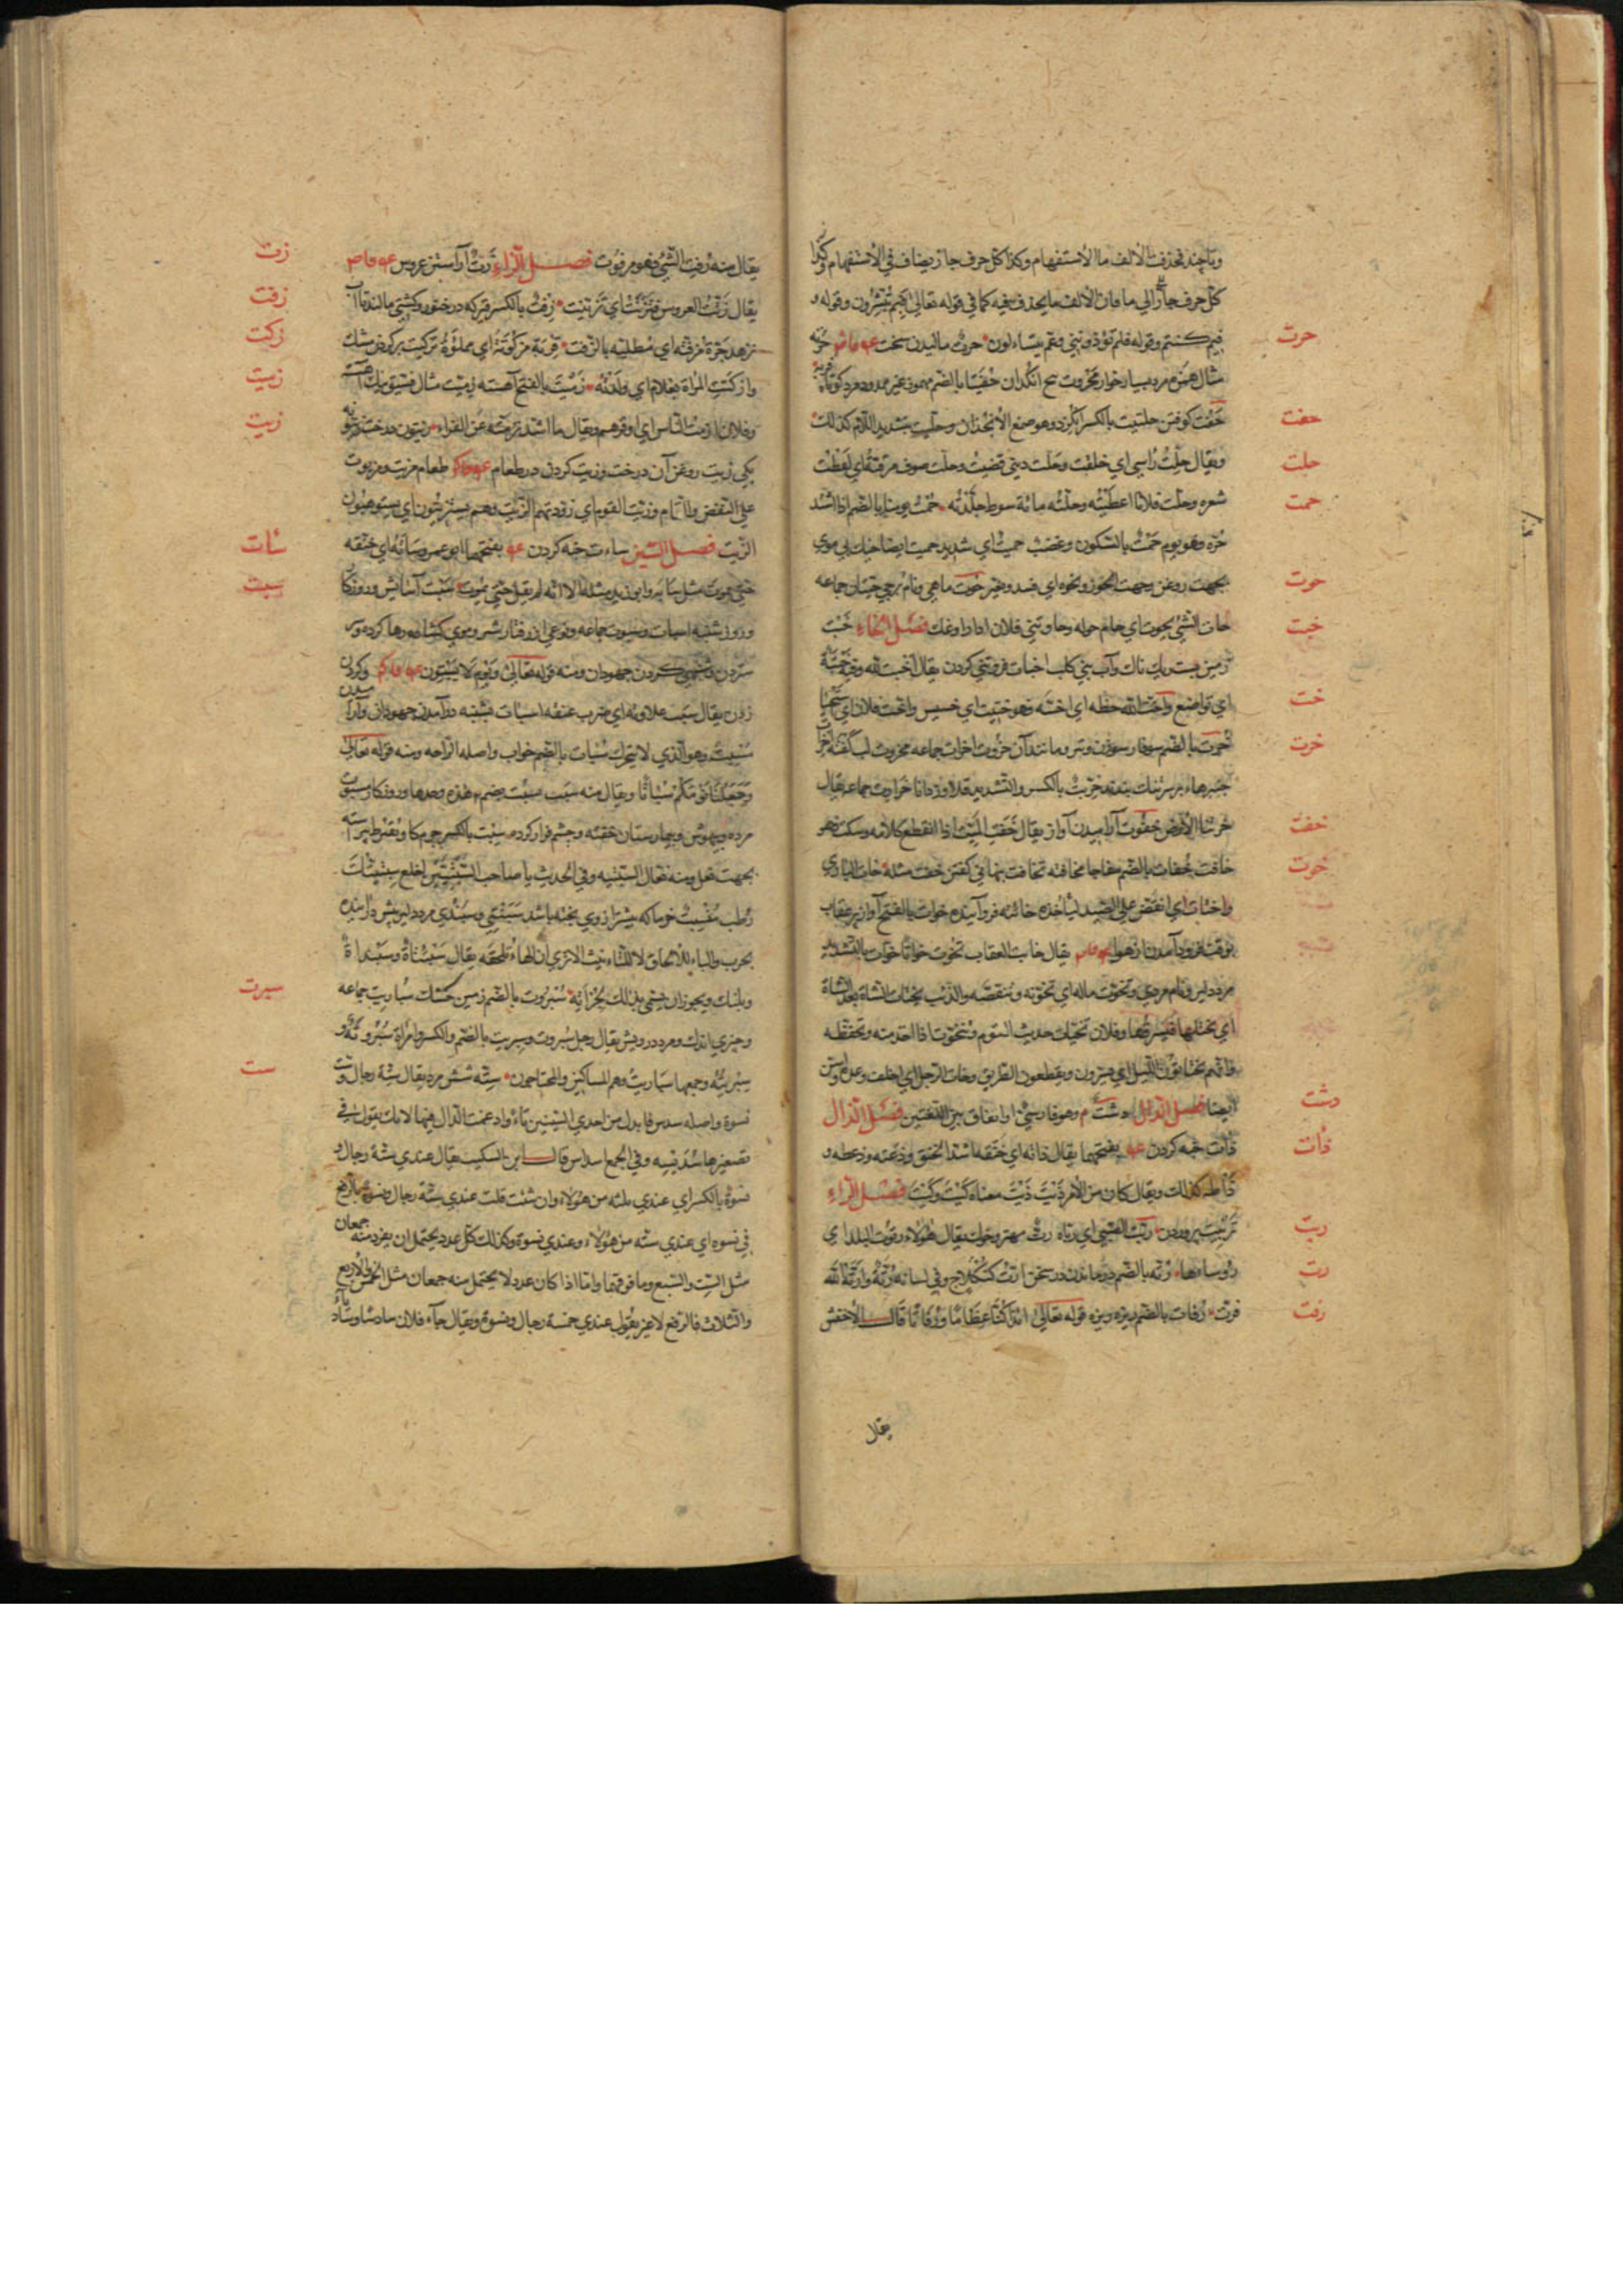 وتا چند تحذف الالف ما الاستفهام وكذا كل حرف جار يضاف في الاستفهام وكذا
كل حرف جار الي ما فان الالف ما يحذف فيه كما في قوله تعالي فبم تبشرون وقوله و
فيم كنتم وقوله فلم تؤذونني وعم يتساءلون حرت ماليدن سخت
حرت
مثال همزه مرد بسيار خوار محروت بيخ انكدان حفيتا بالضم مهموز غير ممدود مرد كوتاه
حفت كوفتن حلتيت بالكسر انكژد وهو صمغ الانجذان وحليت بتشديد اللام كذلك
حفت
ويقال حلت راسي اي حلقت وحلت ديني قضيت وحلت صوف مرقته اي
حلت
شعره وحلت فلانا اعطيته وحلته مائة سوط جلدته حمت يومنا بالضم اذا اشتد
حمت
حره وهو يوم حمت بالسكون وغضب حميت اي شديد حميت ايضا خيك بي موي
بجهت روغن وحمت الجوز ونحوه اي فسد وتغير حوت ماهي ونام برجي حيتان جماعه
حوت
حات الشي يحوت اي حام حوله وحاوتني فلان اذا راوغك فصل الخاء خبت
خبت
زمين پست وآب بني كلب اخبات فروتني كردن يقال اخبت لله وفيه خبتة
اي تواضع واخت الله حظه اي اخسه وهو ختيت اي خسيس واختت فلان اي استحيا
خت
خرت بالضم سوفار سوزن وتبر ومانند آن خروت اخرات جماعه مخروت لب كفته
خرت
خريت بالكسر والتشديد قلاوز دانا خراريت جماعه يقال
خرتنا الارض خفوت آراميدن آواز يقال خفت الميت اذا انقطع كلامه وسكت فهو
خفت
خافت خفات بالضم مفاجا مخافته تخافت پنهاني كفتن خفت مثله خات البازي
خوت
واختات اي انقض علي الصيد لياخذه خائته فرو آينده خوات بالفتح آواز پر عقاب
بوقت فرود آمدن از هوا يقال خات العقاب تخوت خواتا خوات بالتشديد
مرد دلير ونام مردي وتخوت ماله اي تخونه وتنقصه والذئب يختات الشاة بعد الشاة
اي يختلها فيسرقها وفلان تختات حديث القوم وتتخوت اذا اخذ منه وتحفظه
وانهم يختاتون الليل اي يسيرون ويقطعون الطريق وخات الرجل اي اخلف وعده
ايضا فصل الدال دشت م وهو فارسي او اتفاق بين اللغتين فصل الذال
دشت
ذأت خبه كردن بفتحهما يقال ذأته اي خنقه اشد الخنق وذعته وذعطه و
ذأت
ذأطه كذلك ويقال كان من الامر ذيت ذيت معناه كيت وكيت فصل الراء
تربيت پروردن ربت الصبي اي رباه رت مهتر وخوك يقال هؤلاء رتوت البلد اي
ربت
رؤساءها رته بالضم درماندن در سخن ارت كنكلاج وفي لسانه رته وارته الله
رت
فرت رفات بالضم ريزه ريزه قوله تعالي ائذا كنا عظاما ورفاتا قال الاخفش
رفت
يقال
يقال منه رفت الشي فهو مرفوت فصل الزاء زت آراستن عروس
زت
يقال زتت العروس فتزتت اي تزينت زفت بالكسر قير كه در خنور وكشتي مالند تا آب
زفت
نزهد جرة مزفته اي مطليه بالزفت قربة مزكوته اي مملوة تزكيت پر كردن مشك
زكت
وازكتت المراة بغلام اي ولدته زميت بالفتح آهسته زميت مثال فسيق نيك آهسته
زميت
وفلان ازمت الناس اي اوقرهم ويقال ما اشد تزمته عن الفراء زيتون درخت زيتونه
زيت
يكي زيت روغن آن درخت وزيت كردن در طعام طعام مزيت ومزيوت
علي النقص والتمام وزت القوم اي زودتهم الزيت وهم يستزيتون اي يستوهبون
الزيت فصل السين سأت خبه كردن بفتحهما ابو عمرو سأته اي خنقه
سأت
حتي يموت مثل سأبه وابو زيد مثله الا انه لم يقل حتي يموت سبت آسايش وروزكار
سبت
وروز شنبه اسبات وسبوت جماعه ونوعي از رفتار شتر وموي كشاده رها كردن وسر
ستردن وشنبهي كردن جهودان ومنه قوله تعالي ويوم لا يسبتون وكردن
زدن يقال سبت علاوته اي ضرب عنقه اسبات بشنبه در آمدن جهودان وآراميدن
مسبت وهو الذي لا يتحرك سبات بالضم خواب واصله الراحه ومنه قوله تعالي
وجعلنا نومكم سباتا ويقال منه سبت يسبت بضم هذه وحدها وروزكار مسبوت
مرده وبيهوش وبيمارستان خفته وچشم فراز كرده سبت بالكسر چرم كاو بقرظ پيراسته
بجهت نعل ومنه نعال السبتيه وفي الحديث يا صاحب السبتيتين اخلع سبتيتك
رطب منسبت خرما كه بيشتر ازوي پخته باشد سبنتي وسبندي مرد دلير پيش درآينده
بحرب والياء للالحاق لا للتانيث الا تري ان الهاء تلحقه يقال سبنتاة وسبنداة
وپلنك ويجوز ان يسمي بذلك لجراته سبروت بالضم زمين خشك سباريت جماعه
سبرت
وچيزي اندك ومرد درويش يقال رجل سبروت وسبريت بالضم والكسر وامراة سبروتة و
سبريته وجمعها سباريت وهم المساكين والمحتاجون سته شش مرد يقال ستة رجال وست
ست
نسوة واصله سدس فابدل من احدي السينين تاء وادغمت الدال فيها لانك تقول في
تصغيرها سديسه وفي الجمع اسداس قال ابن السكيت يقال عندي ستة رجال و
نسوة بالكسر اي عندي ثلثه من هؤلاء وان شئت قلت عندي ستة رجال ونسوة بالرفع
في نسوه اي عندي سته من هؤلاء وعندي نسوة وكذلك كل عدد يحتمل ان يفرد منه جمعان
مثل الست والسبع وما فوقهما واما اذا كان عدد لا يحتمل منه جمعان مثل الخمس والاربع
والثلاث فالرفع لا غير يقول عندي خمسة رجال ونسوة ويقال جاء فلان سادسا وساتا